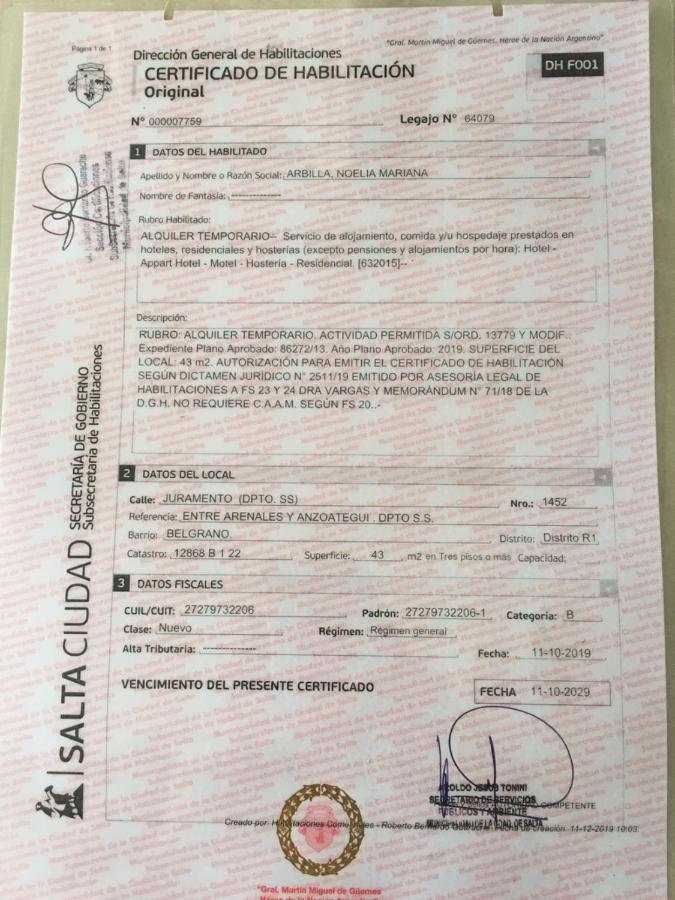 Página 1 de 1
"Gral. Martin Miguel de Güemes, Héroe de la Nación Argentina"
Dirección General de Habilitaciones
CERTIFICADO DE HABILITACIÓN
Original
DH F001
N° 000007759
Legajo N° 64079
1 DATOS DEL HABILITADO
Apellido y Nombre o Razón Social: ARBILLA, NOELIA MARIANA
Nombre de Fantasía: --------------
Rubro Habilitado:
ALQUILER TEMPORARIO-- Servicio de alojamiento, comida y/u hospedaje prestados en
hoteles, residenciales y hosterías (excepto pensiones y alojamientos por hora): Hotel -
Appart Hotel - Motel - Hostería - Residencial. [632015]--
Descripción:
RUBRO: ALQUILER TEMPORARIO. ACTIVIDAD PERMITIDA S/ORD. 13779 Y MODIF..
Expediente Plano Aprobado: 86272/13. Año Plano Aprobado: 2019. SUPERFICIE DEL
LOCAL: 43 m2. AUTORIZACIÓN PARA EMITIR EL CERTIFICADO DE HABILITACIÓN
SEGÚN DICTAMEN JURÍDICO N° 2511/19 EMITIDO POR ASESORÍA LEGAL DE
HABILITACIONES A FS 23 Y 24 DRA VARGAS Y MEMORÁNDUM N° 71/18 DE LA
D.G.H. NO REQUIERE C.A.A.M. SEGÚN FS 20..-
2 DATOS DEL LOCAL
Calle: JURAMENTO (DPTO. SS)
Nro.: 1452
Referencia: ENTRE ARENALES Y ANZOATEGUI . DPTO S.S.
Barrio: BELGRANO.
Distrito: Distrito R1
Catastro: 12868 B 1 22 Superficie: 43 m2 en Tres pisos o más Capacidad:
3 DATOS FISCALES
CUIL/CUIT: 27279732206 Padrón: 27279732206-1 Categoría: B
Clase: Nuevo Régimen: Régimen general
Alta Tributaria: --------------
Fecha: 11-10-2019
VENCIMIENTO DEL PRESENTE CERTIFICADO
FECHA 11-10-2029
SALTA CIUDAD
SECRETARÍA DE GOBIERNO
Subsecretaría de Habilitaciones
AROLDO JESUS TONINI
SECRETARIO DE SERVICIOS
PUBLICOS Y AMBIENTE
COMPETENTE
Creado por: Habilitaciones Comerciales - Roberto
Fecha de creación: 11-12-2019 10:03
"Gral. Martin Miguel de Güemes
Héroe de la Nación